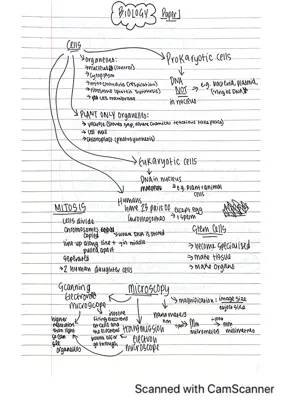 BIOLOGY Paper 1
Cells
→ organelles:
→ nucleus (control)
→ cytoplasm
→ mitochondria (respiration)
→ ribosomes (protein synthesis)
→ cell membrane
Prokaryotic cells
DNA
NOT
in nucleus
→ e.g. bacteria, plasmid,
(ring of DNA)
→ PLANT ONLY organelles:
→ vacuole
→ cell wall
→ chloroplasts (photosynthesis)
Eukaryotic cells
DNA in nucleus
→ e.g. plant + animal
cells
Humans
have 23 pairs of
chromosomes
→ except egg
+ sperm
MITOSIS
cells divide
chromosomes copied
→ where DNA is stored
line up along line + in middle
pulled apart
separate
→ 2 daughter cells
Stem Cells
→ become specialised
→ make tissue
→ make organs
microscopy
→ magnification: image size
object size
Scanning
Electron
microscope
higher
resolution than light
so can
see
organelles
transmission
electron
microscope
nanometres
nm
μm
micrometres
mm
millimetres
Scanned with CamScanner